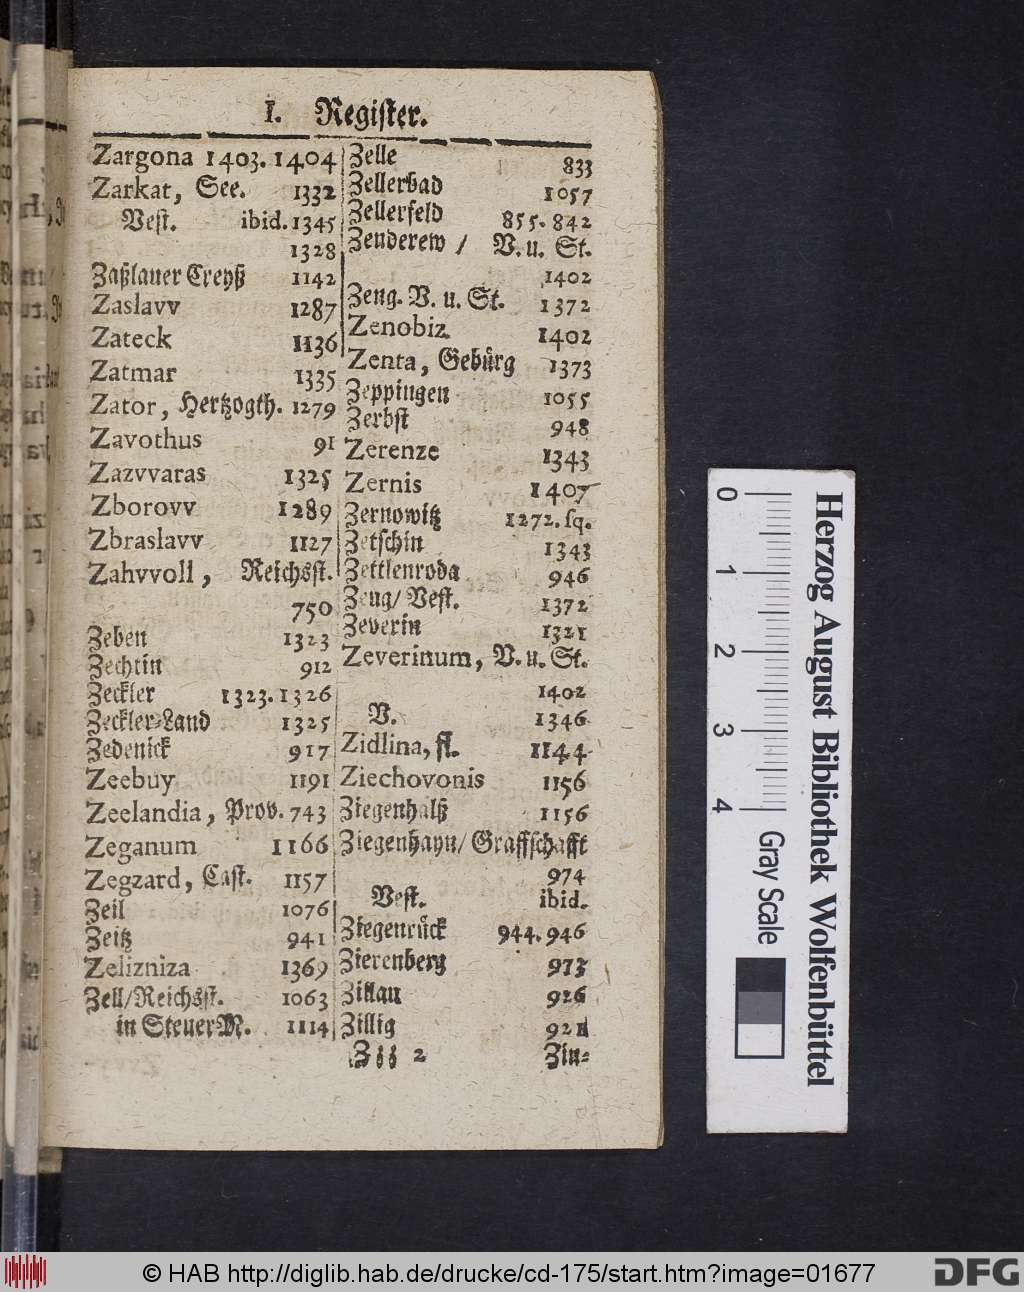 I. Register.
Zargona 1403. 1404
Zarkat, See. 1332
Vest. ibid. 1345
1328
Zaßlauer Creyß 1142
Zaslavv 1287
Zateck 1136
Zatmar 1335
Zator, Hertzogth. 1279
Zavothus 91
Zazvvaras 1325
Zborovv 1289
Zbraslavv 1127
Zahvvoll, Reichsst.
750
Zeben 1323
Zechtin 912
Zeckler 1323. 1326
Zeckler-Land 1325
Zedenick 917
Zeebuy 1191
Zeelandia, Prov. 743
Zeganum 1166
Zegzard, Cast. 1157
Zeil 1076
Zeitz 941
Zelizniza 1369
Zell/Reichsst. 1063
in Steuer-M. 1114
Zelle 833
Zellerbad 1057
Zellerfeld 855. 842
Zenderew / V. u. St.
1402
Zeng. V. u. St. 1372
Zenobiz 1402
Zenta, Gebürg 1373
Zeppingen 1055
Zerbst 948
Zerenze 1343
Zernis 1407
Zernowitz 1272. sq.
Zetschin 1343
Zettlenroda 946
Zeug/ Vest. 1372
Zeverin 1321
Zeverinum, V. u. St.
1402
V. 1346
Zidlina, fl. 1144
Ziechovonis 1156
Ziegenhalß 1156
Ziegenhayn/ Graffschafft
974
Vest. ibid.
Ziegenrück 944. 946
Zierenberg 973
Zillau 926
Zillig 921
Zzz 2 Zin-
Herzog August Bibliothek Wolfenbüttel
0 1 2 3 4 Gray Scale
© HAB http://diglib.hab.de/drucke/cd-175/start.htm?image=01677
DFG